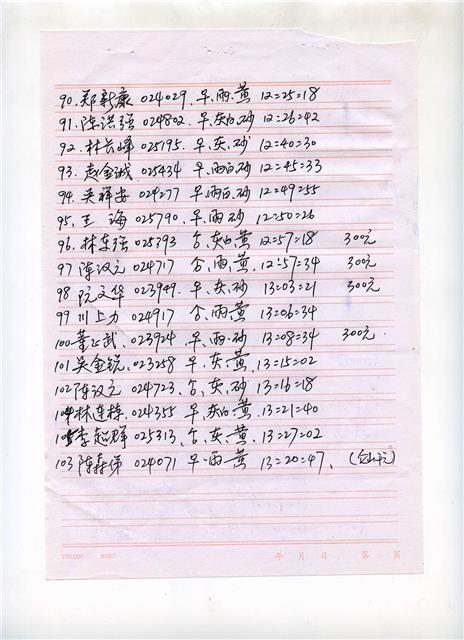 90. 郑新康 024029. 早、雨、黄 12=25=18
91. 陈洪强 024802. 早、灰白、砂 12=26=42
92. 林长峰 025195. 早、灰、砂 12=40=30
93. 赵金诚 025434 早、雨白、砂 12=45=33
94. 吴祥安 024277 早、雨白、砂 12=49=55
95. 王海 025790. 早、雨、砂 12=50=26
96. 林东强 025393 合、灰白、黄 12=57=18 300元
97 陈汉元 024717 合、雨、黄 12=57=34 300元
98 阮文华 023949. 早、灰、砂 13=03=21 300元
99 川上力 024917 合、雨、黄 13=06=34
100 董正武. 023924 早、雨、砂 13=08=34 300元.
101 吴金锐. 023258 早、灰、黄 13=15=02
102 陈汉元 024723. 合、灰、砂 13=16=18
104 林连栋 024355 早、灰白、黄 13=21=40
105 李超群 025313 合、灰、黄 13=27=02
103 陈森俤 024071 早、雨、黄 13=20=47、
年 月 日 第 页